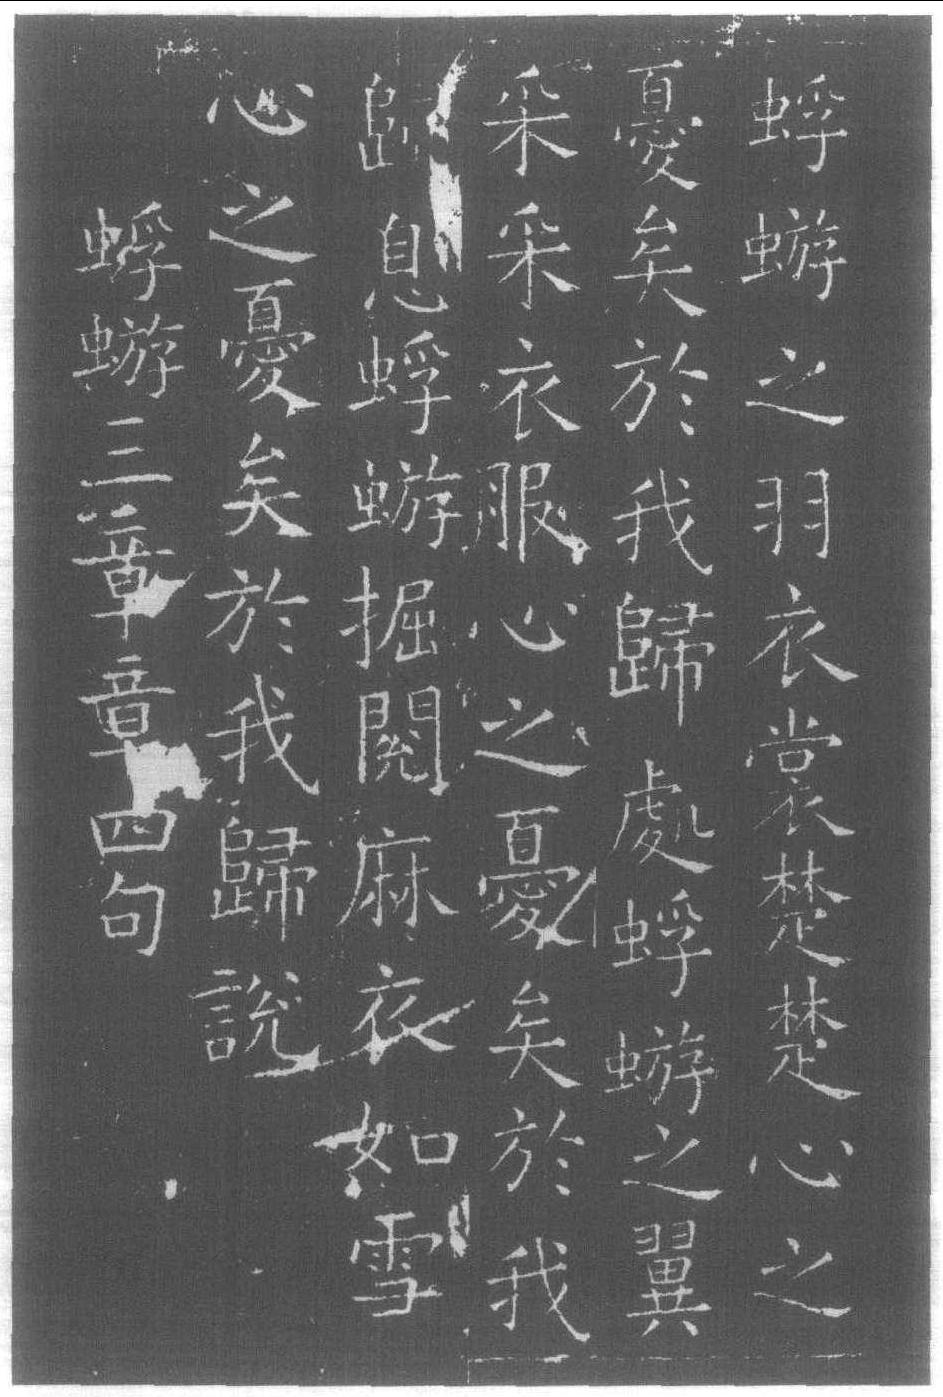 蜉蝣之羽衣裳楚楚心之
憂矣於我歸處蜉蝣之翼
采采衣服心之憂矣於我
歸息蜉蝣掘閱麻衣如雪
心之憂矣於我歸說
蜉蝣三章章四句